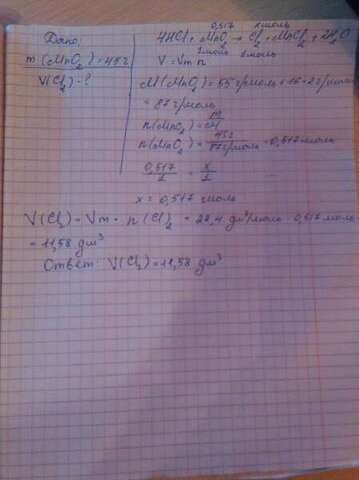 Дано:
m(MnO2)=45г
V(Cl2)-?
0,517 xмоль
4HCl+MnO2→Cl2+MnCl2+2H2O
1моль 1моль
V=Vm·n
M(MnO2)=55 г/моль+16·2г/моль
=87 г/моль
n(MnO2)=m/M
n(MnO2)=45г/87г/моль=0,517моль
0,517/1=x/1
x=0,517 моль
V(Cl2)=Vm·n(Cl)2=22,4 дм3/моль·0,517 моль
=11,58 дм3
Ответ: V(Cl2)=11,58 дм3